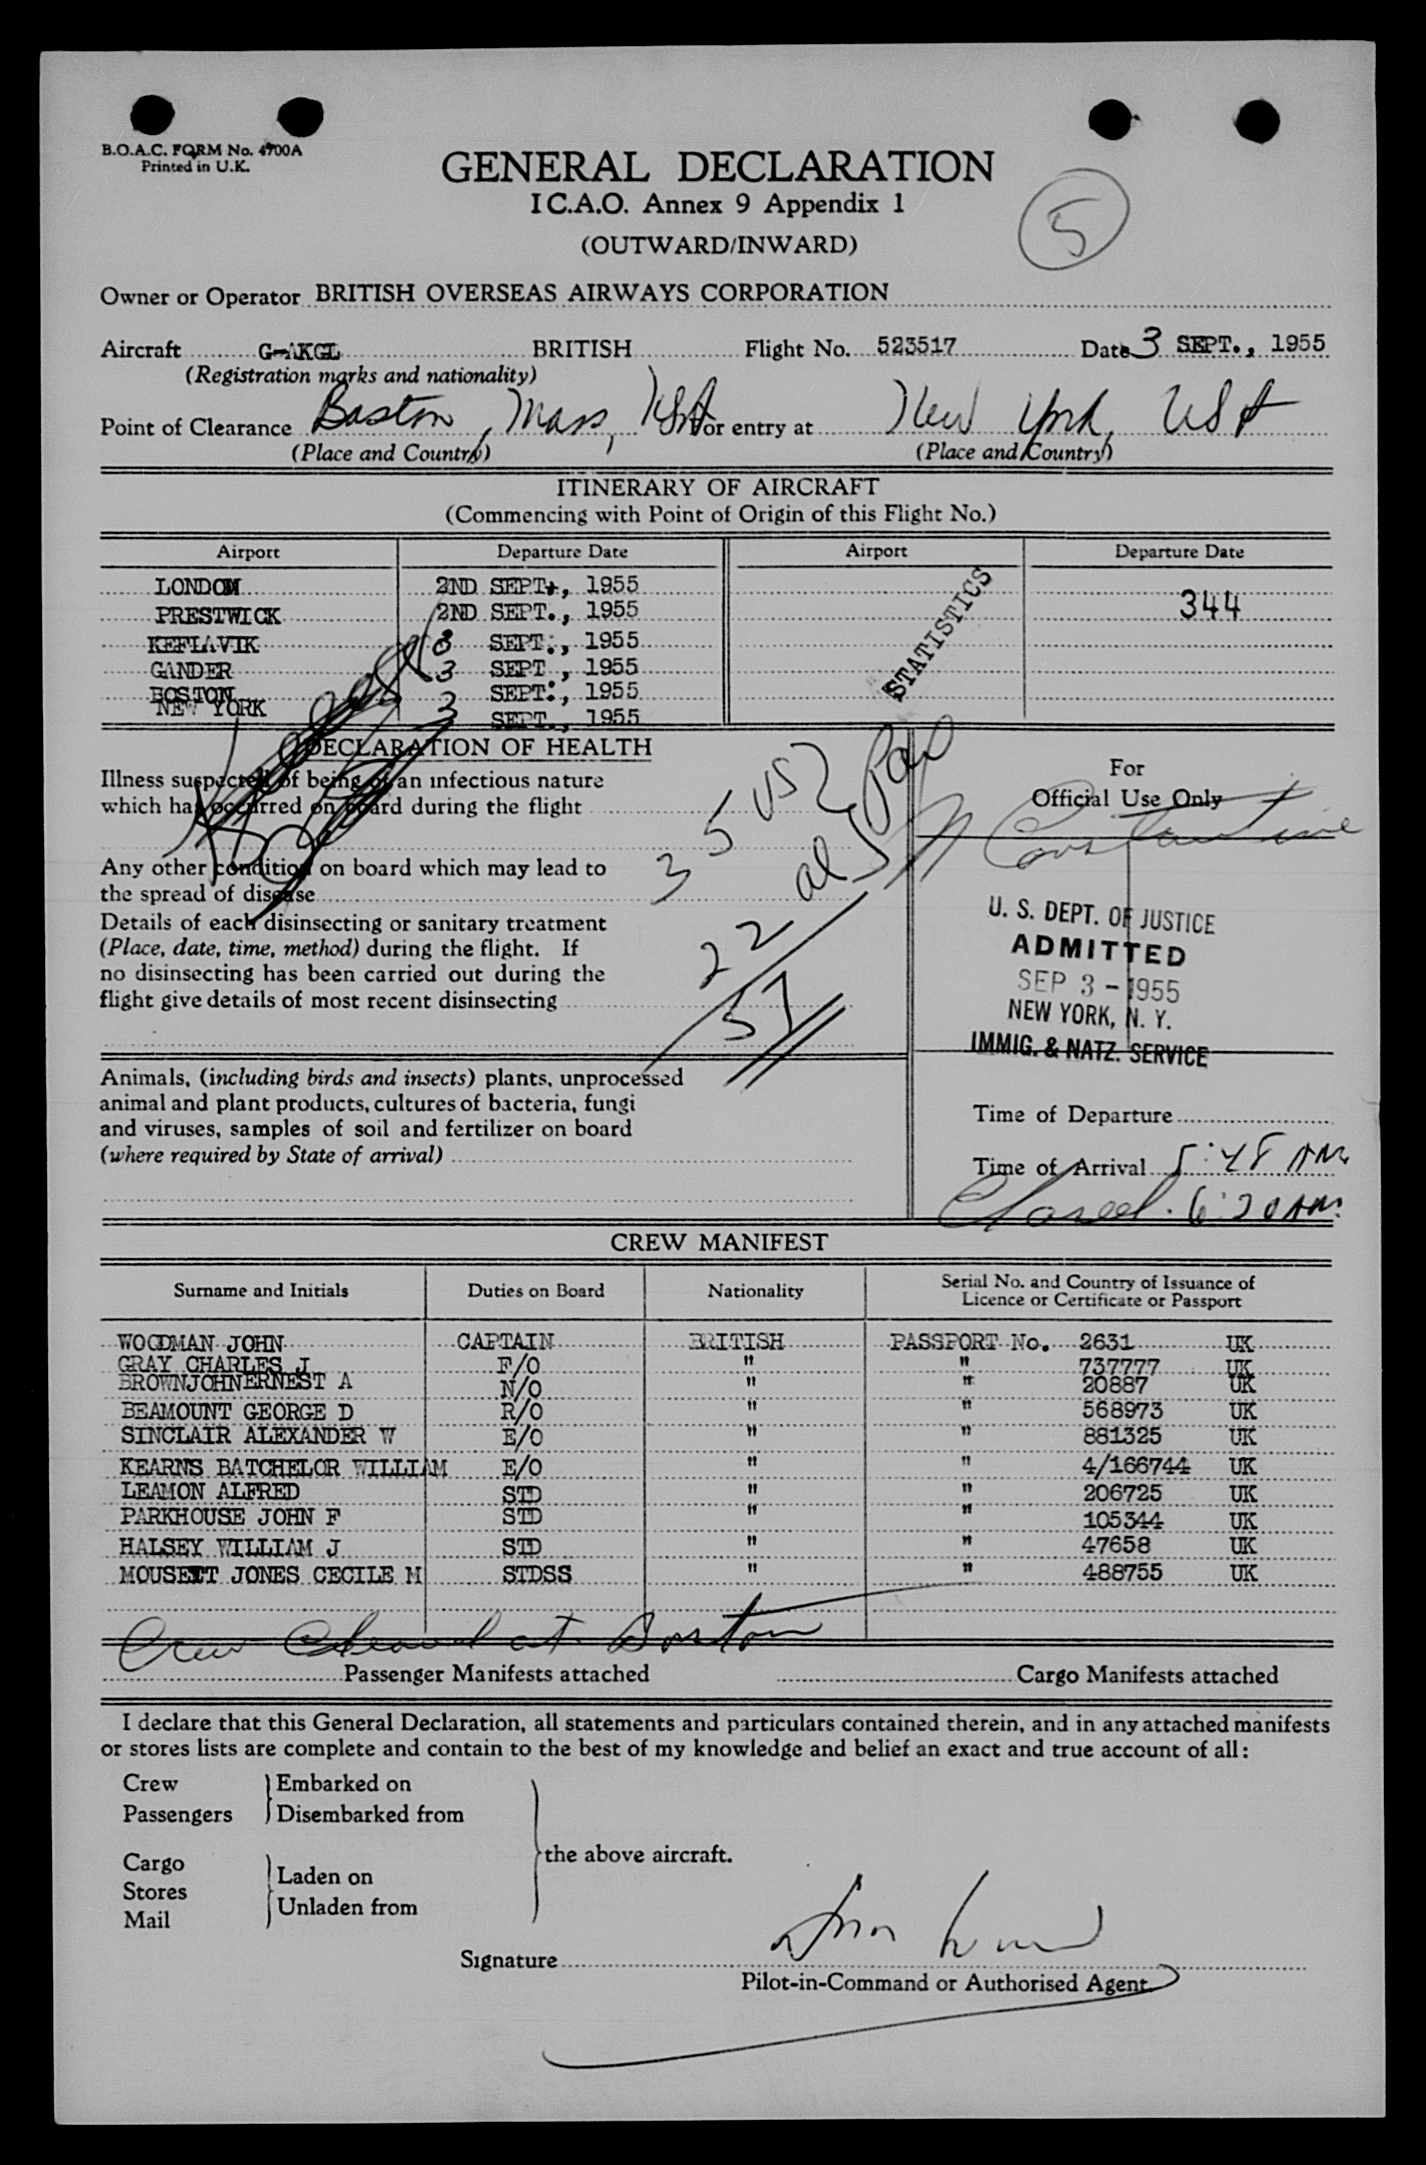 B.O.A.C. FORM No. 4700A
Printed in U.K.
GENERAL DECLARATION
I C.A.O. Annex 9 Appendix 1
(OUTWARD/INWARD)
5
Owner or Operator BRITISH OVERSEAS AIRWAYS CORPORATION
Aircraft G-AKGL BRITISH Flight No. 523517 Date 3 SEPT., 1955
(Registration marks and nationality)
Point of Clearance Boston, Mass, USA For entry at New York, USA
(Place and Country) (Place and Country)
ITINERARY OF AIRCRAFT
(Commencing with Point of Origin of this Flight No.)
Airport Departure Date Airport Departure Date
LONDON 2ND SEPT., 1955
PRESTWICK 2ND SEPT., 1955 344
KEFLAVIK 3 SEPT., 1955
GANDER 3 SEPT., 1955
BOSTON SEPT., 1955
NEW YORK 3 SEPT., 1955
STATISTICS
DECLARATION OF HEALTH
Illness suspected of being of an infectious nature
which has occurred on board during the flight
Any other condition on board which may lead to
the spread of disease
Details of each disinsecting or sanitary treatment
(Place, date, time, method) during the flight. If
no disinsecting has been carried out during the
flight give details of most recent disinsecting
35 USC
22 al
57
Animals, (including birds and insects) plants, unprocessed
animal and plant products, cultures of bacteria, fungi
and viruses, samples of soil and fertilizer on board
(where required by State of arrival)
For
Official Use Only
Constantine
U. S. DEPT. OF JUSTICE
ADMITTED
SEP 3 - 1955
NEW YORK, N. Y.
IMMIG. & NATZ. SERVICE
Time of Departure
Time of Arrival 5:48 AM
Closed. 6:20 AM.
CREW MANIFEST
Surname and Initials Duties on Board Nationality Serial No. and Country of Issuance of
Licence or Certificate or Passport
WOODMAN JOHN CAPTAIN BRITISH PASSPORT No. 2631 UK
GRAY CHARLES J F/O " " 737777 UK
BROWNJOHN ERNEST A N/O " " 20887 UK
BEAMOUNT GEORGE D R/O " " 568973 UK
SINCLAIR ALEXANDER W E/O " " 881325 UK
KEARNS BATCHELOR WILLIAM E/O " " 4/166744 UK
LEAMON ALFRED STD " " 206725 UK
PARKHOUSE JOHN F STD " " 105344 UK
HALSEY WILLIAM J STD " " 47658 UK
MOUSETT JONES CECILE M STDSS " " 488755 UK
Crew Cleared at Boston
Passenger Manifests attached Cargo Manifests attached
I declare that this General Declaration, all statements and particulars contained therein, and in any attached manifests
or stores lists are complete and contain to the best of my knowledge and belief an exact and true account of all:
Crew Embarked on
Passengers Disembarked from
the above aircraft.
Cargo
Laden on
Stores
Unladen from
Mail
Signature
Pilot-in-Command or Authorised Agent.